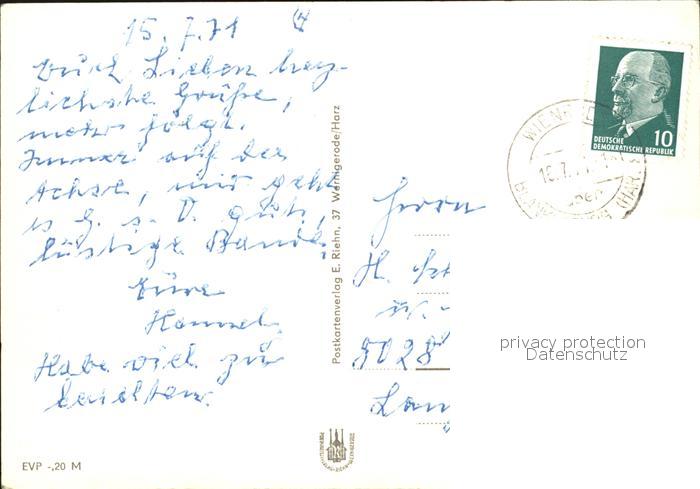 15.7.71
Euch Lieben herz-
lichste Grüße,
mehr folgt.
Immer auf der
Achse, mir geht
es G. s. D. gut,
lustige Bande.
Eure
Hannel.
Habe viel zu
berichten.
EVP -,20 M
Postkartenverlag E. Riehn, 37 Wernigerode/Harz
DEUTSCHE
DEMOKRATISCHE REPUBLIK
10
Herrn
H.
8028
privacy protection
Datenschutz